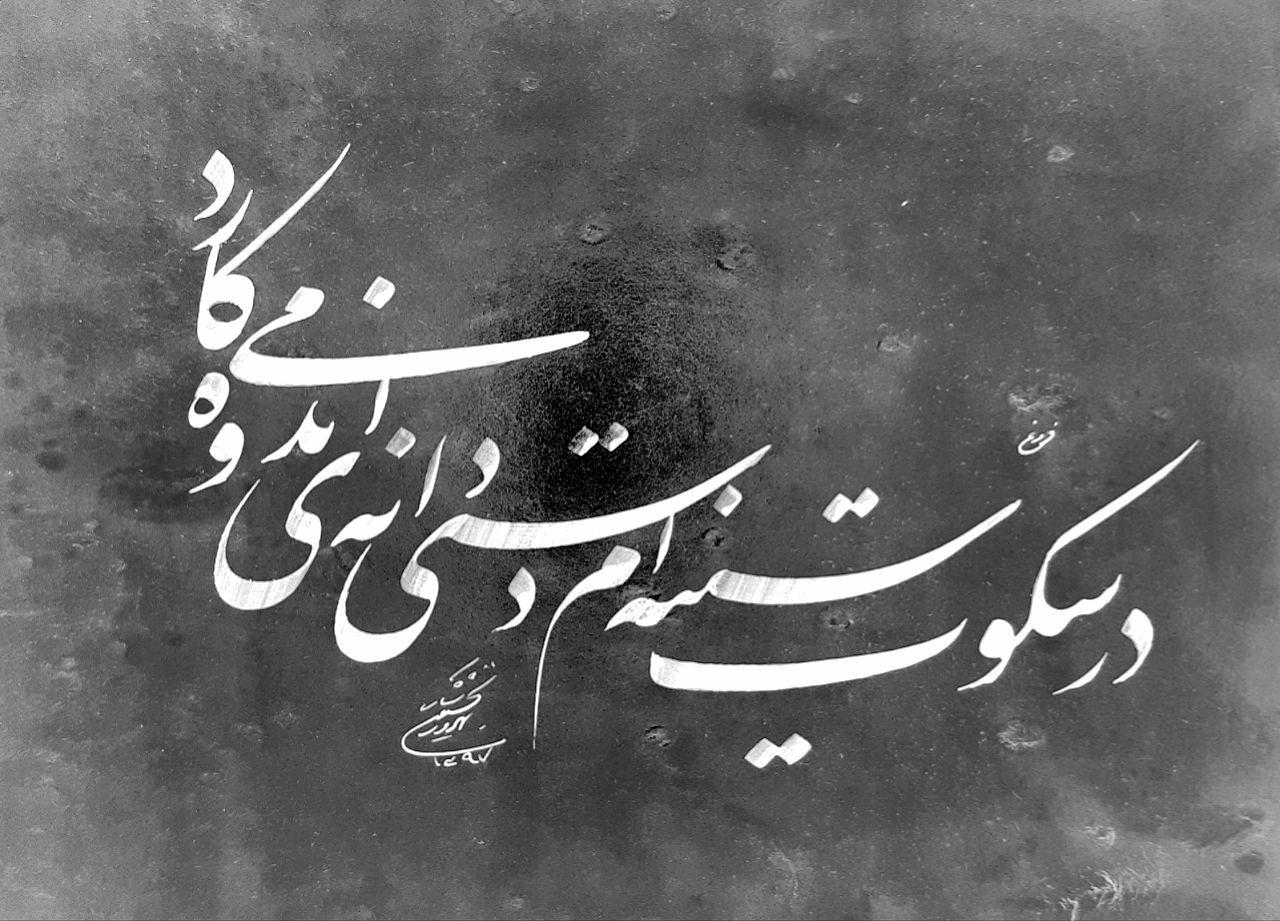 فروغ
در سکوت سینه ام دستی دانه ی اندوه می کارد
۱۳۹۷